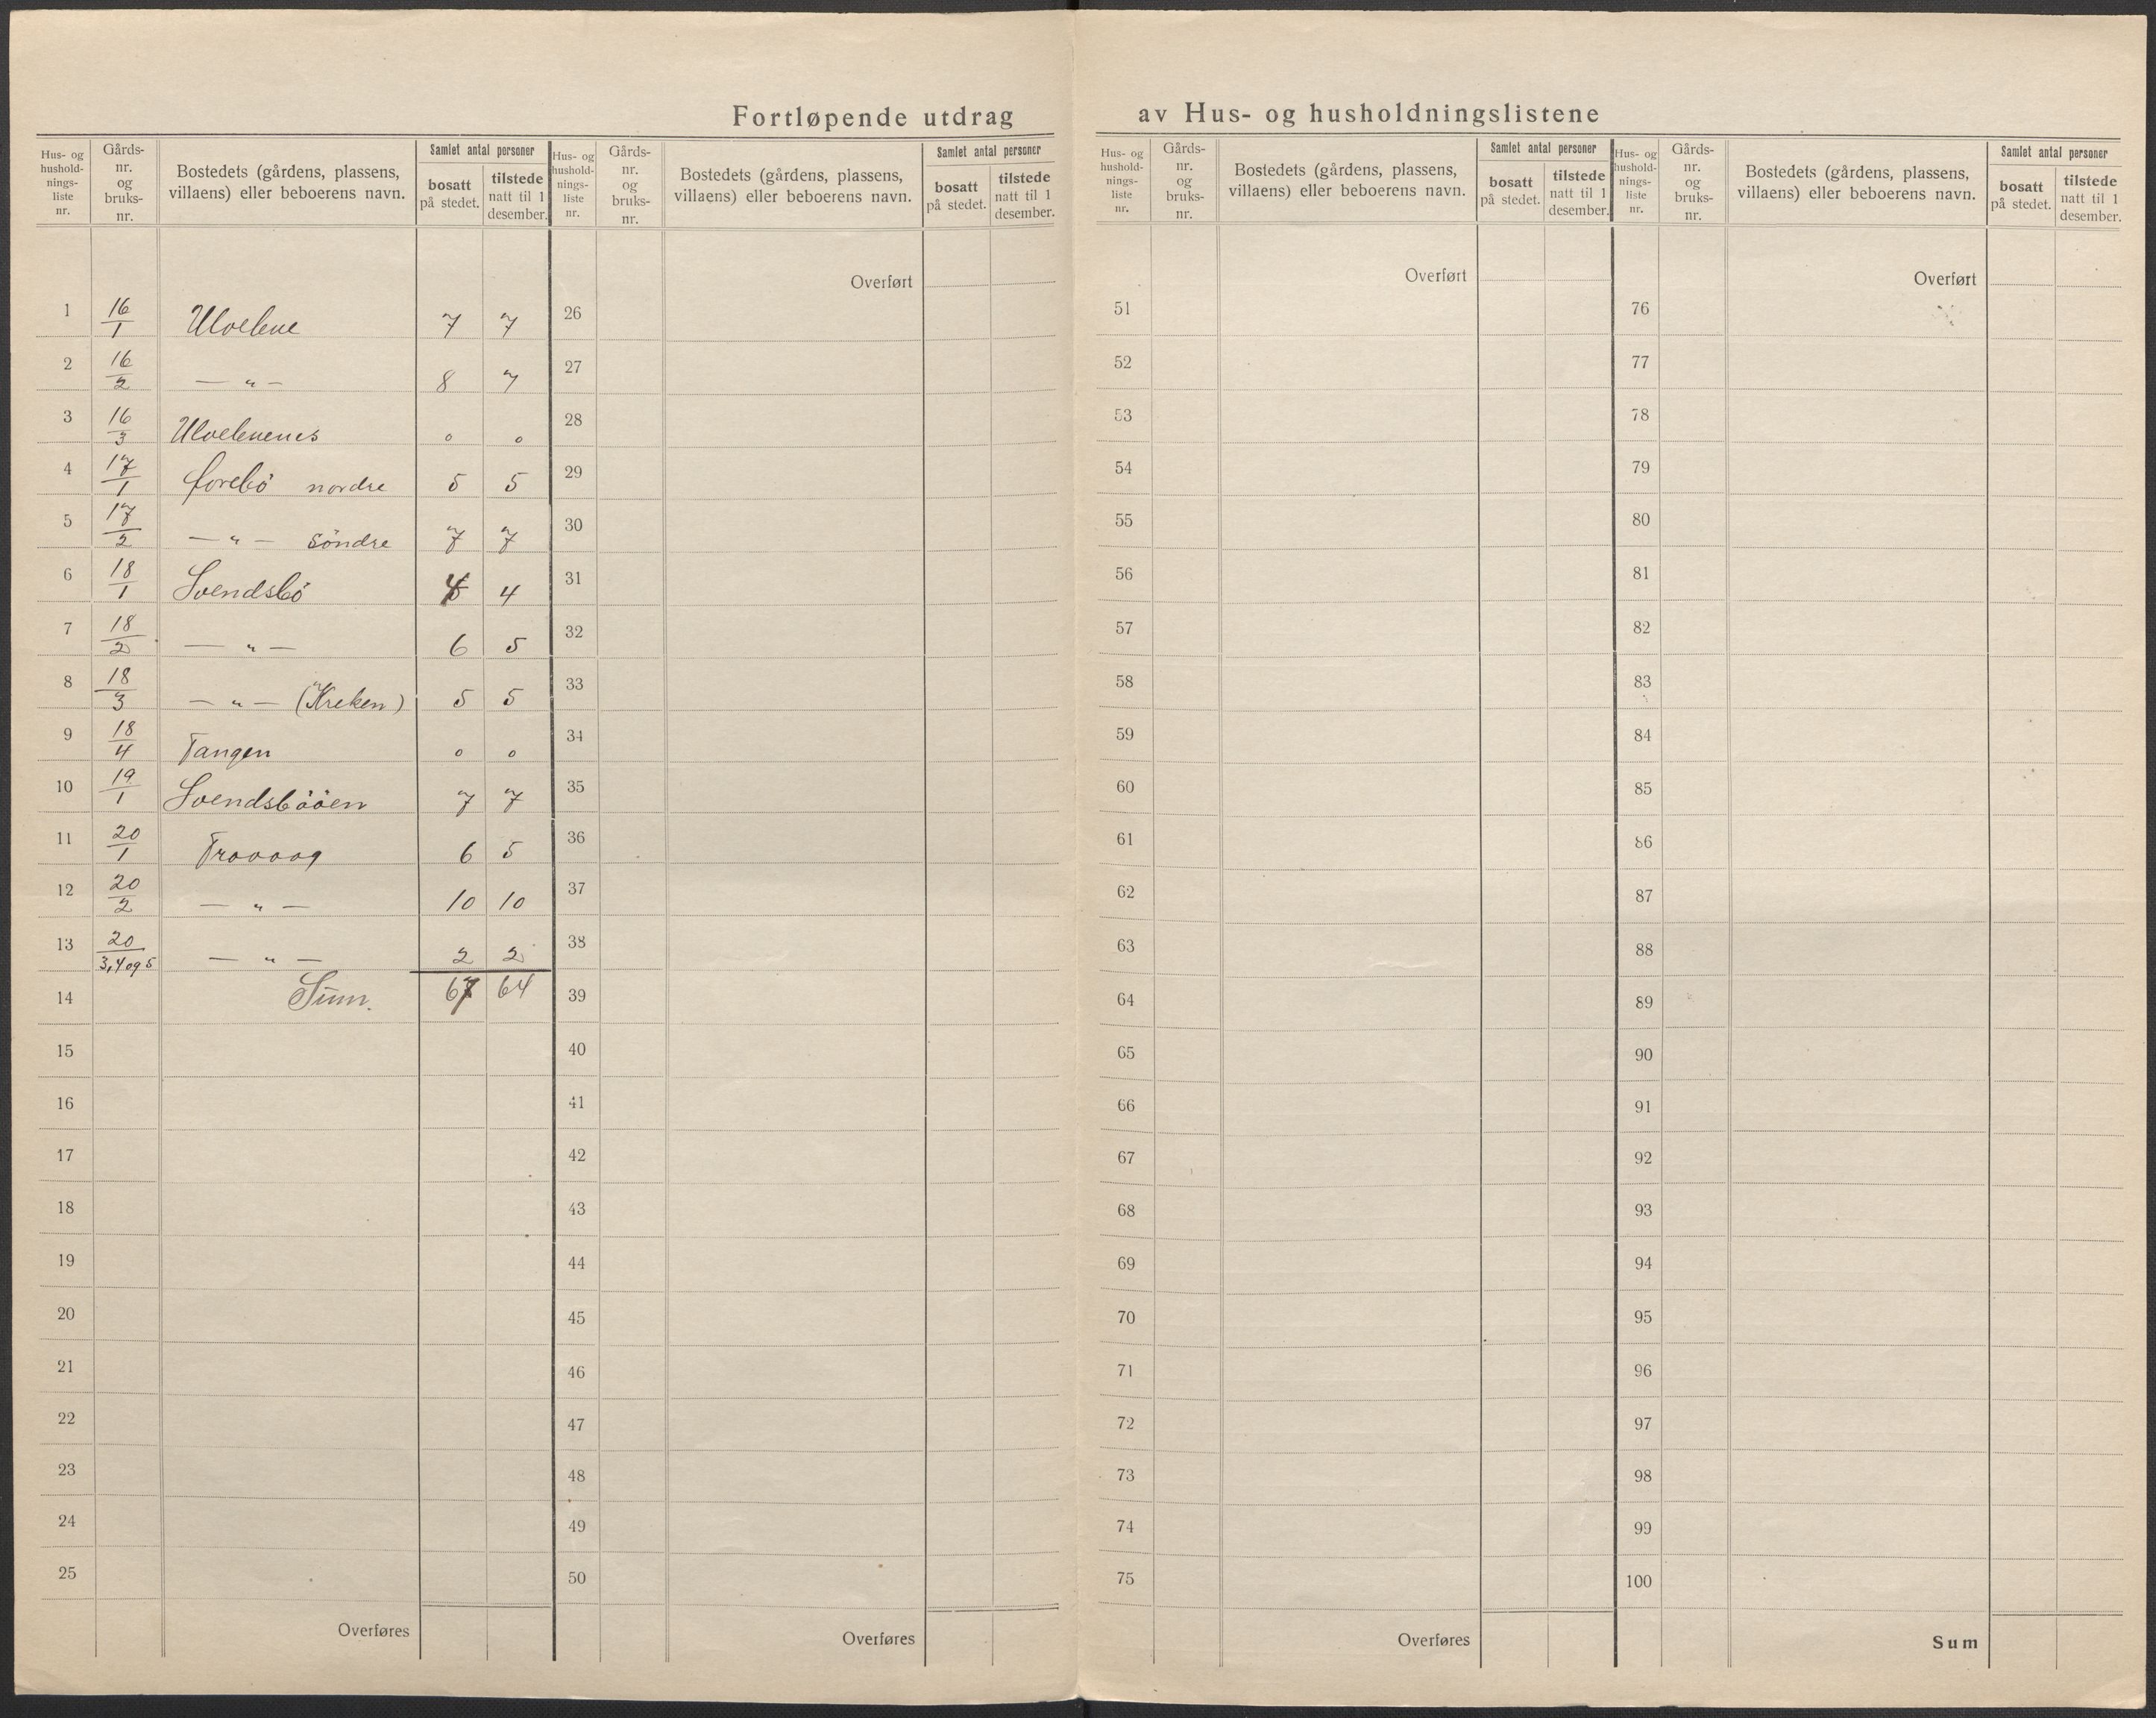 Fortløpende utdrag av Hus- og husholdningslistene
Hus- og hushold-nings-liste nr. Gårds-nr. og bruks-nr. Bostedets (gårdens, plassens, villaens) eller beboerens navn. Samlet antal personer bosatt på stedet. tilstede natt til 1 desember.
1 16/1 Ulvelene 7 7
2 16/2 — " — 8 7
3 16/3 Ulvelenenes 0 0
4 17/1 Forebö nordre 5 5
5 17/2 — " — söndre 7 7
6 18/1 Svendsbö 4 4
7 18/2 — " — 6 5
8 18/3 — " — (Kreken) 5 5
9 18/4 Tangen 0 0
10 19/1 Svendsbööen 7 7
11 20/1 Travaag 6 5
12 20/2 — " — 10 10
13 20/3,4 og 5 — " — 2 2
14 Sum. 67 64
15
16
17
18
19
20
21
22
23
24
25
Overføres
Hus- og hushold-nings-liste nr. Gårds-nr. og bruks-nr. Bostedets (gårdens, plassens, villaens) eller beboerens navn. Samlet antal personer bosatt på stedet. tilstede natt til 1 desember.
Overført
26
27
28
29
30
31
32
33
34
35
36
37
38
39
40
41
42
43
44
45
46
47
48
49
50
Overføres
Hus- og hushold-nings-liste nr. Gårds-nr. og bruks-nr. Bostedets (gårdens, plassens, villaens) eller beboerens navn. Samlet antal personer bosatt på stedet. tilstede natt til 1 desember.
Overført
51
52
53
54
55
56
57
58
59
60
61
62
63
64
65
66
67
68
69
70
71
72
73
74
75
Overføres
Hus- og hushold-nings-liste nr. Gårds-nr. og bruks-nr. Bostedets (gårdens, plassens, villaens) eller beboerens navn. Samlet antal personer bosatt på stedet. tilstede natt til 1 desember.
Overført
76
77
78
79
80
81
82
83
84
85
86
87
88
89
90
91
92
93
94
95
96
97
98
99
100
Sum